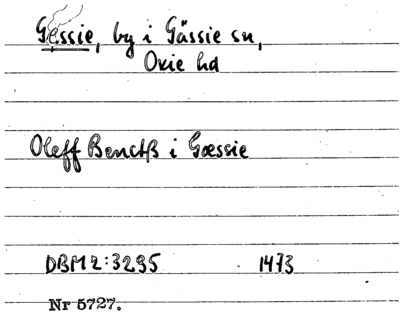 Gessie, by i Gässie sn,
Oxie hd
Oleff Benctß i Gæssie
DBM 2:3295 1473
Nr 5727.